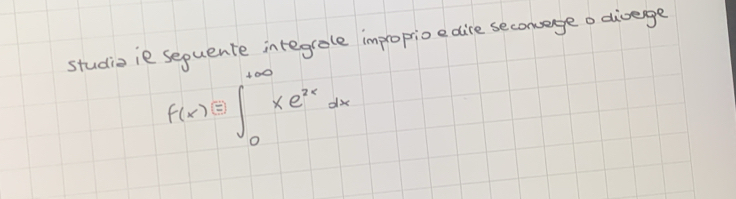 studia il seguente integrale improprio e dire se converge o diverge
f(x) = ∫₀^{+∞} x e^{2x} dx